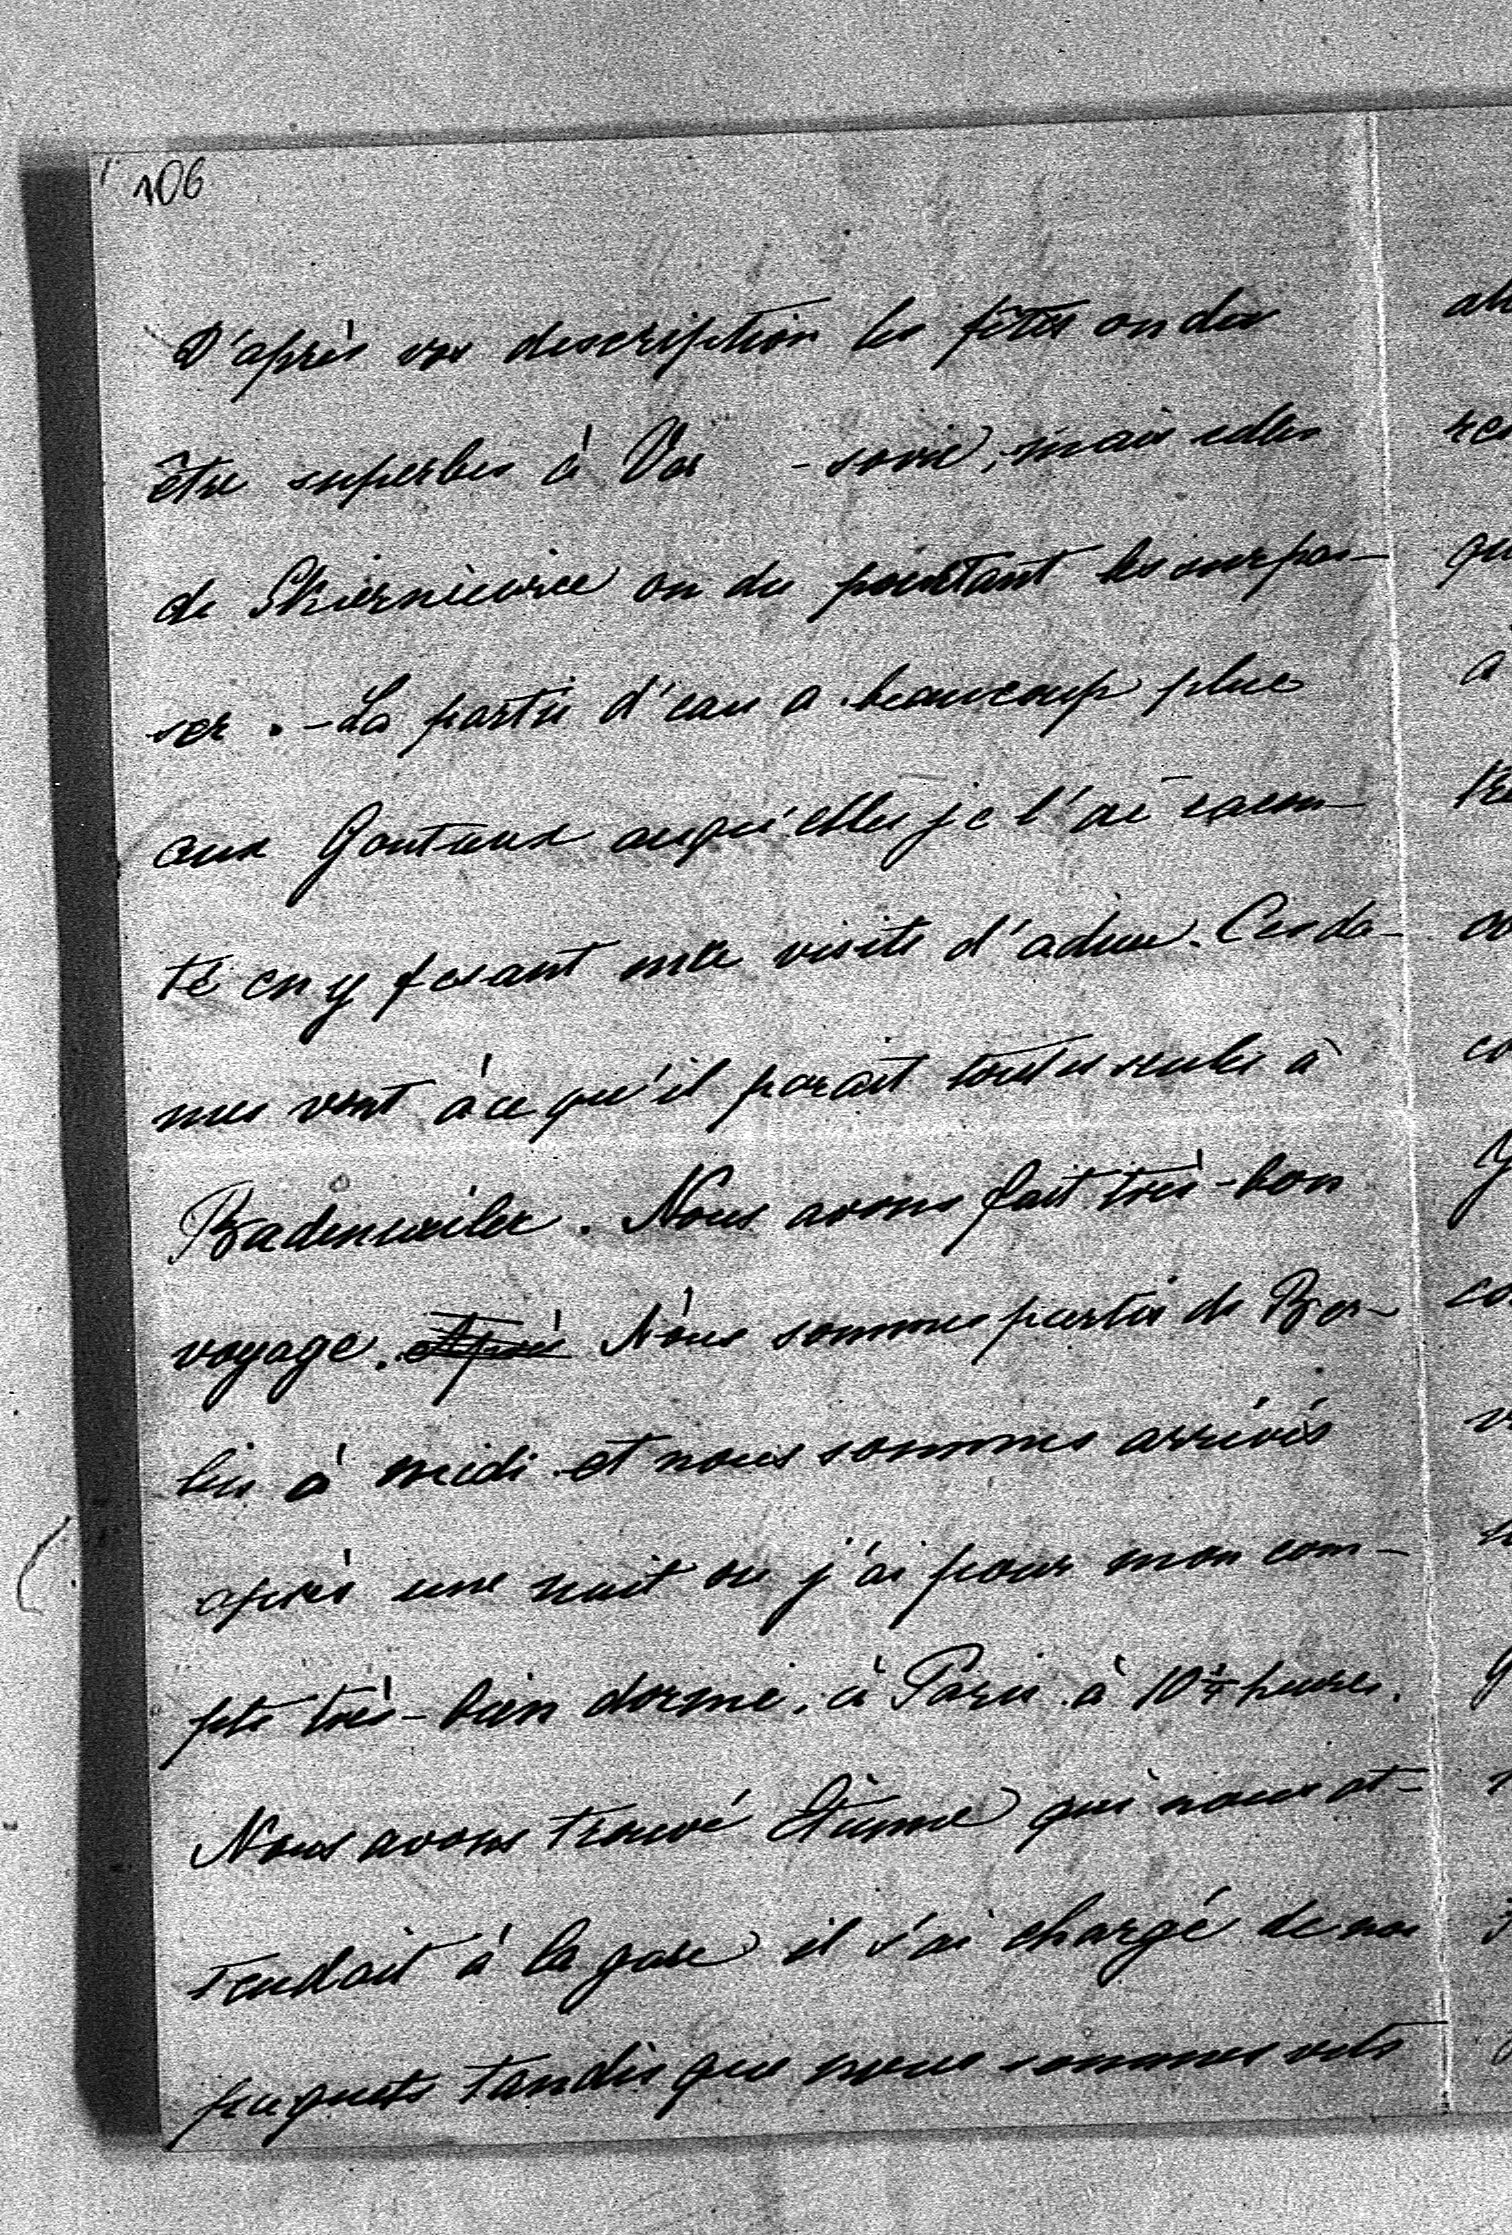 106
D'après vos description les fêtes on du
être superbes à Var - sovie, mais celles
de Skiernievice on du pourtant les surpas-
ser. - La partie d'eau a beaucoup plue
aux Gontaux auqu'elles je l'ai racon-
té en y fesant ma visite d'adieu. Ces da-
mes vont à ce qu'il parait toutes seules à
Badenweiler. Nous avons fait très-bon
voyage. Après Nous sommes partis de Ber-
lin à midi et nous sommes arrivés
après une nuit ou j'ai pour mon com-
pte très-bien dormi, à Paris à 10 heures.
Nous avons trouvé Etienne qui nous at-
tendait à la gare il s'ai chargé de nos
paquets tandis que nous sommes